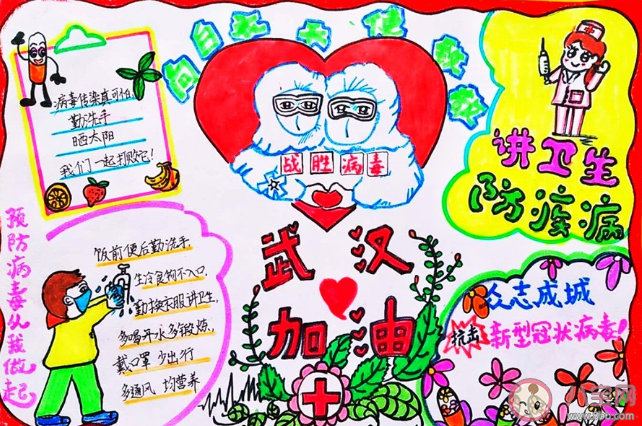 向白衣天使致敬
病毒传染真可怕,
勤洗手
晒太阳
我们一起打败它!
战胜病毒
讲卫生
防疫病
武汉
加油
预防病毒从我做起
饭前便后勤洗手.
生冷食物不入口.
勤换衣服讲卫生,
多喝开水多锻炼,
戴口罩 少出行
多通风 均营养
众志成城
抗击 新型冠状病毒!